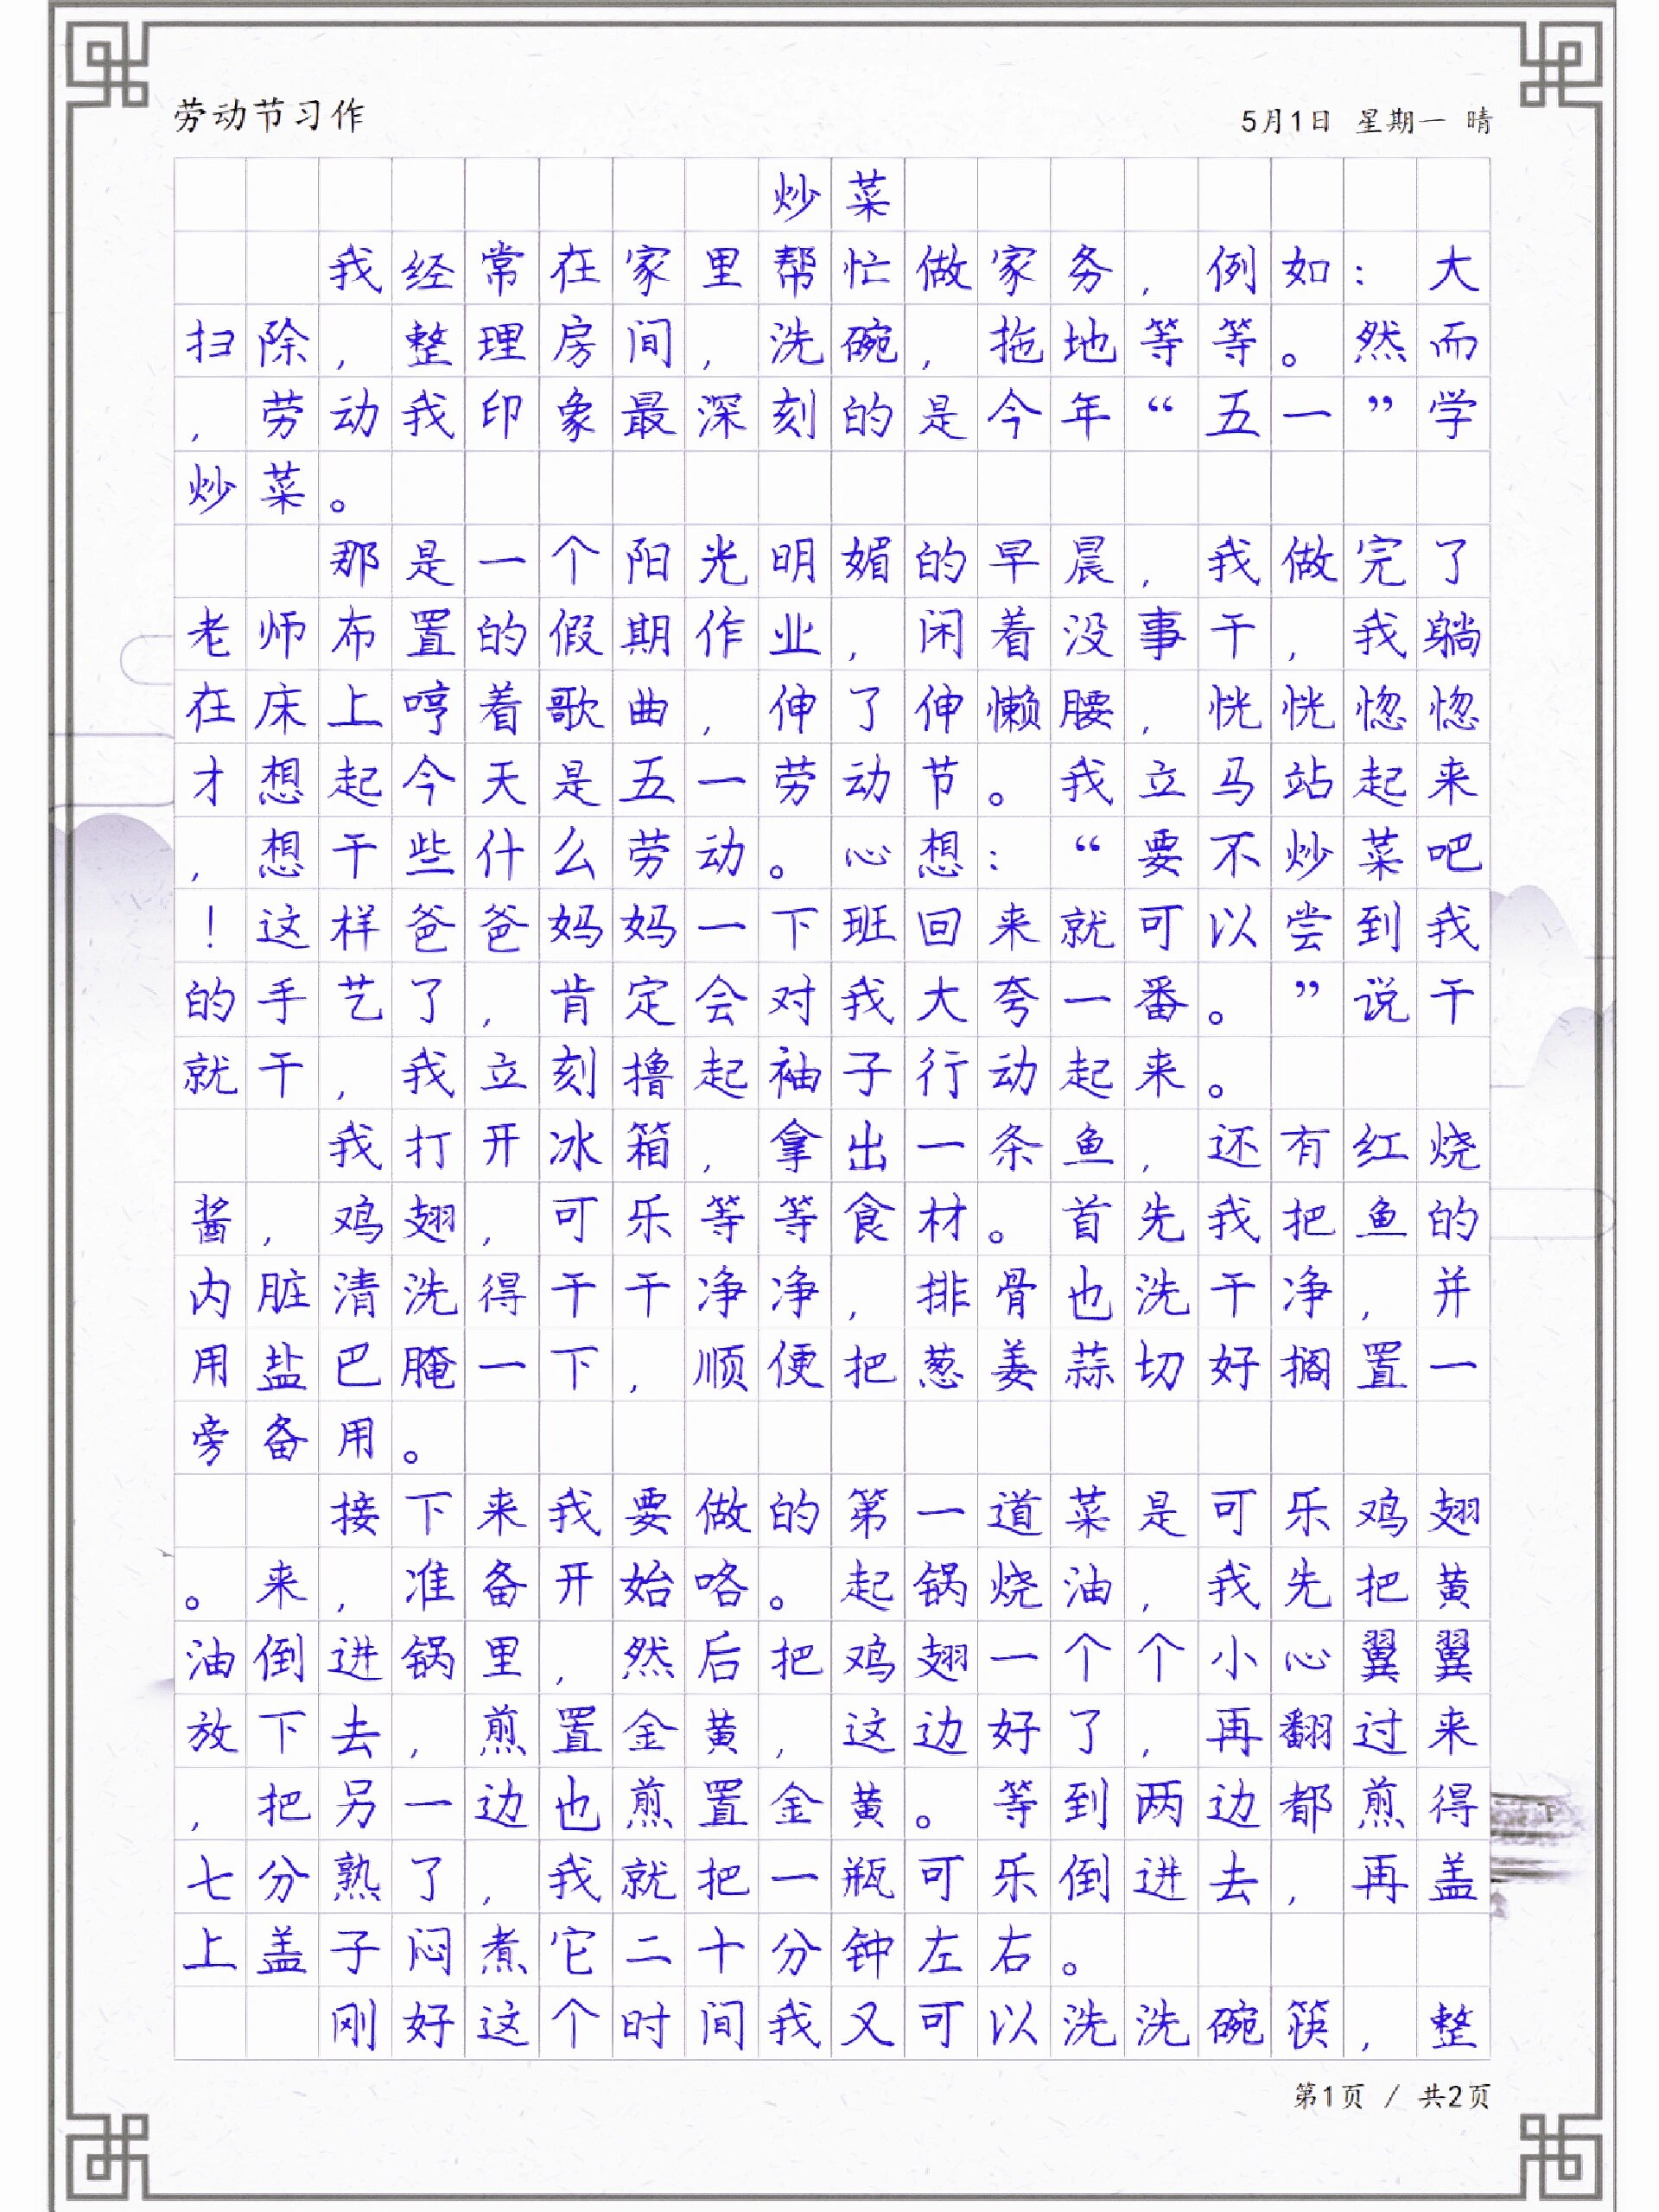 劳动节习作
5月1日 星期一 晴
炒菜
我经常在家里帮忙做家务，例如：大
扫除，整理房间，洗碗，拖地等等。然而
，劳动我印象最深刻的是今年“五一”学
炒菜。
那是一个阳光明媚的早晨，我做完了
老师布置的假期作业，闲着没事干，我躺
在床上哼着歌曲，伸了伸懒腰，恍恍惚惚
才想起今天是五一劳动节。我立马站起来
，想干些什么劳动。心想：“要不炒菜吧
！这样爸爸妈妈一下班回来就可以尝到我
的手艺了，肯定会对我大夸一番。”说干
就干，我立刻撸起袖子行动起来。
我打开冰箱，拿出一条鱼，还有红烧
酱，鸡翅，可乐等等食材。首先我把鱼的
内脏清洗得干干净净，排骨也洗干净，并
用盐巴腌一下，顺便把葱姜蒜切好搁置一
旁备用。
接下来我要做的第一道菜是可乐鸡翅
。来，准备开始咯。起锅烧油，我先把黄
油倒进锅里，然后把鸡翅一个个小心翼翼
放下去，煎置金黄，这边好了，再翻过来
，把另一边也煎置金黄。等到两边都煎得
七分熟了，我就把一瓶可乐倒进去，再盖
上盖子闷煮它二十分钟左右。
刚好这个时间我又可以洗洗碗筷，整
第1页 / 共2页